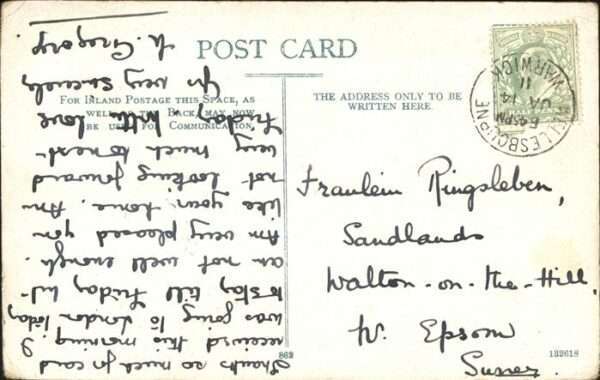 POST CARD
FOR INLAND POSTAGE THIS SPACE, AS
WELL AS THE BACK, MAY NOW
BE USED FOR COMMUNICATION.
THE ADDRESS ONLY TO BE
WRITTEN HERE.
WELLESBOURNE
WARWICK
JA 14
11
Fraulein Ringsleben,
Sandlands
Walton-on-the-Hill,
Nr. Epsom
Surrey.
132618
Thanks so much for card
received this morning. I
was going to London today
to stay till Friday but
am not well enough.
Am very pleased you
like your home. Am
not looking forward
very much to next
Friday. With love
Yrs very sincerely
N. Gregory.